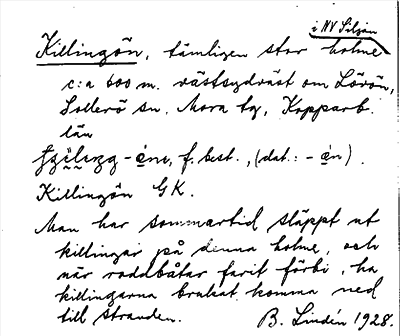 i NV Siljan
Killingön, tämligen stor holme
c:a 600 m. västsydväst om Lövön,
Sollerö sn, Mora tg, Kopparb.
län
-ėnɩ, f. best., (dat.: -ėn).
Killingön GK.
Man har sommartid släppt ut
killingar på denna holme, och
när roddbåtar farit förbi, ha
killingarna brukat komma ned
till stranden. B. Lindén 1928.